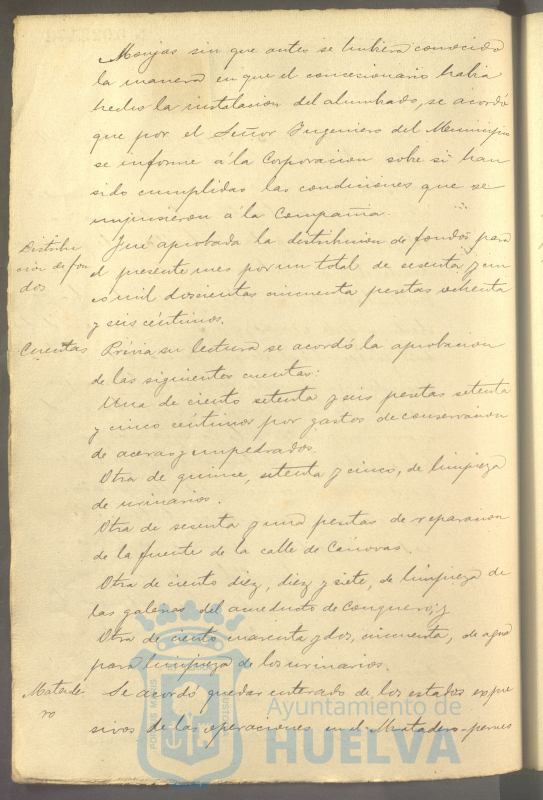 Monjas sin que antes se hubiera conocido
la manera en que el concesionario habia
hecho la instalacion del alumbrado, se acordó
que por el Señor Ingeniero del Municipio
se informe á la Corporacion sobre si han
sido cumplidas las condiciones que se
impusieron á la Compañia.
Distribu
cion de fon
dos
Fué aprobada la distribucion de fondos para
el presente mes por un total de sesenta y cin
co mil doscientas cincuenta pesetas ochenta
y seis céntimos.
Cuentas
Prévia su lectura se acordó la aprobacion
de las siguientes cuentas:
Una de ciento setenta y seis pesetas setenta
y cinco céntimos por gastos de conservacion
de aceras y empedrados.
Otra de quince, setenta y cinco, de limpieza
de urinarios.
Otra de sesenta y una pesetas de reparacion
de la fuente de la calle de Cánovas.
Otra de ciento diez, diez y siete, de limpieza de
las galerias del acueducto de Conquero; y
Otra de ciento cuarenta y dos, cincuenta, de agua
para limpieza de los urinarios.
Matade
ro
Se acordó quedar enterado de los estados expre
sivos de las operaciones en el Matadero
Ayuntamiento de
HUELVA